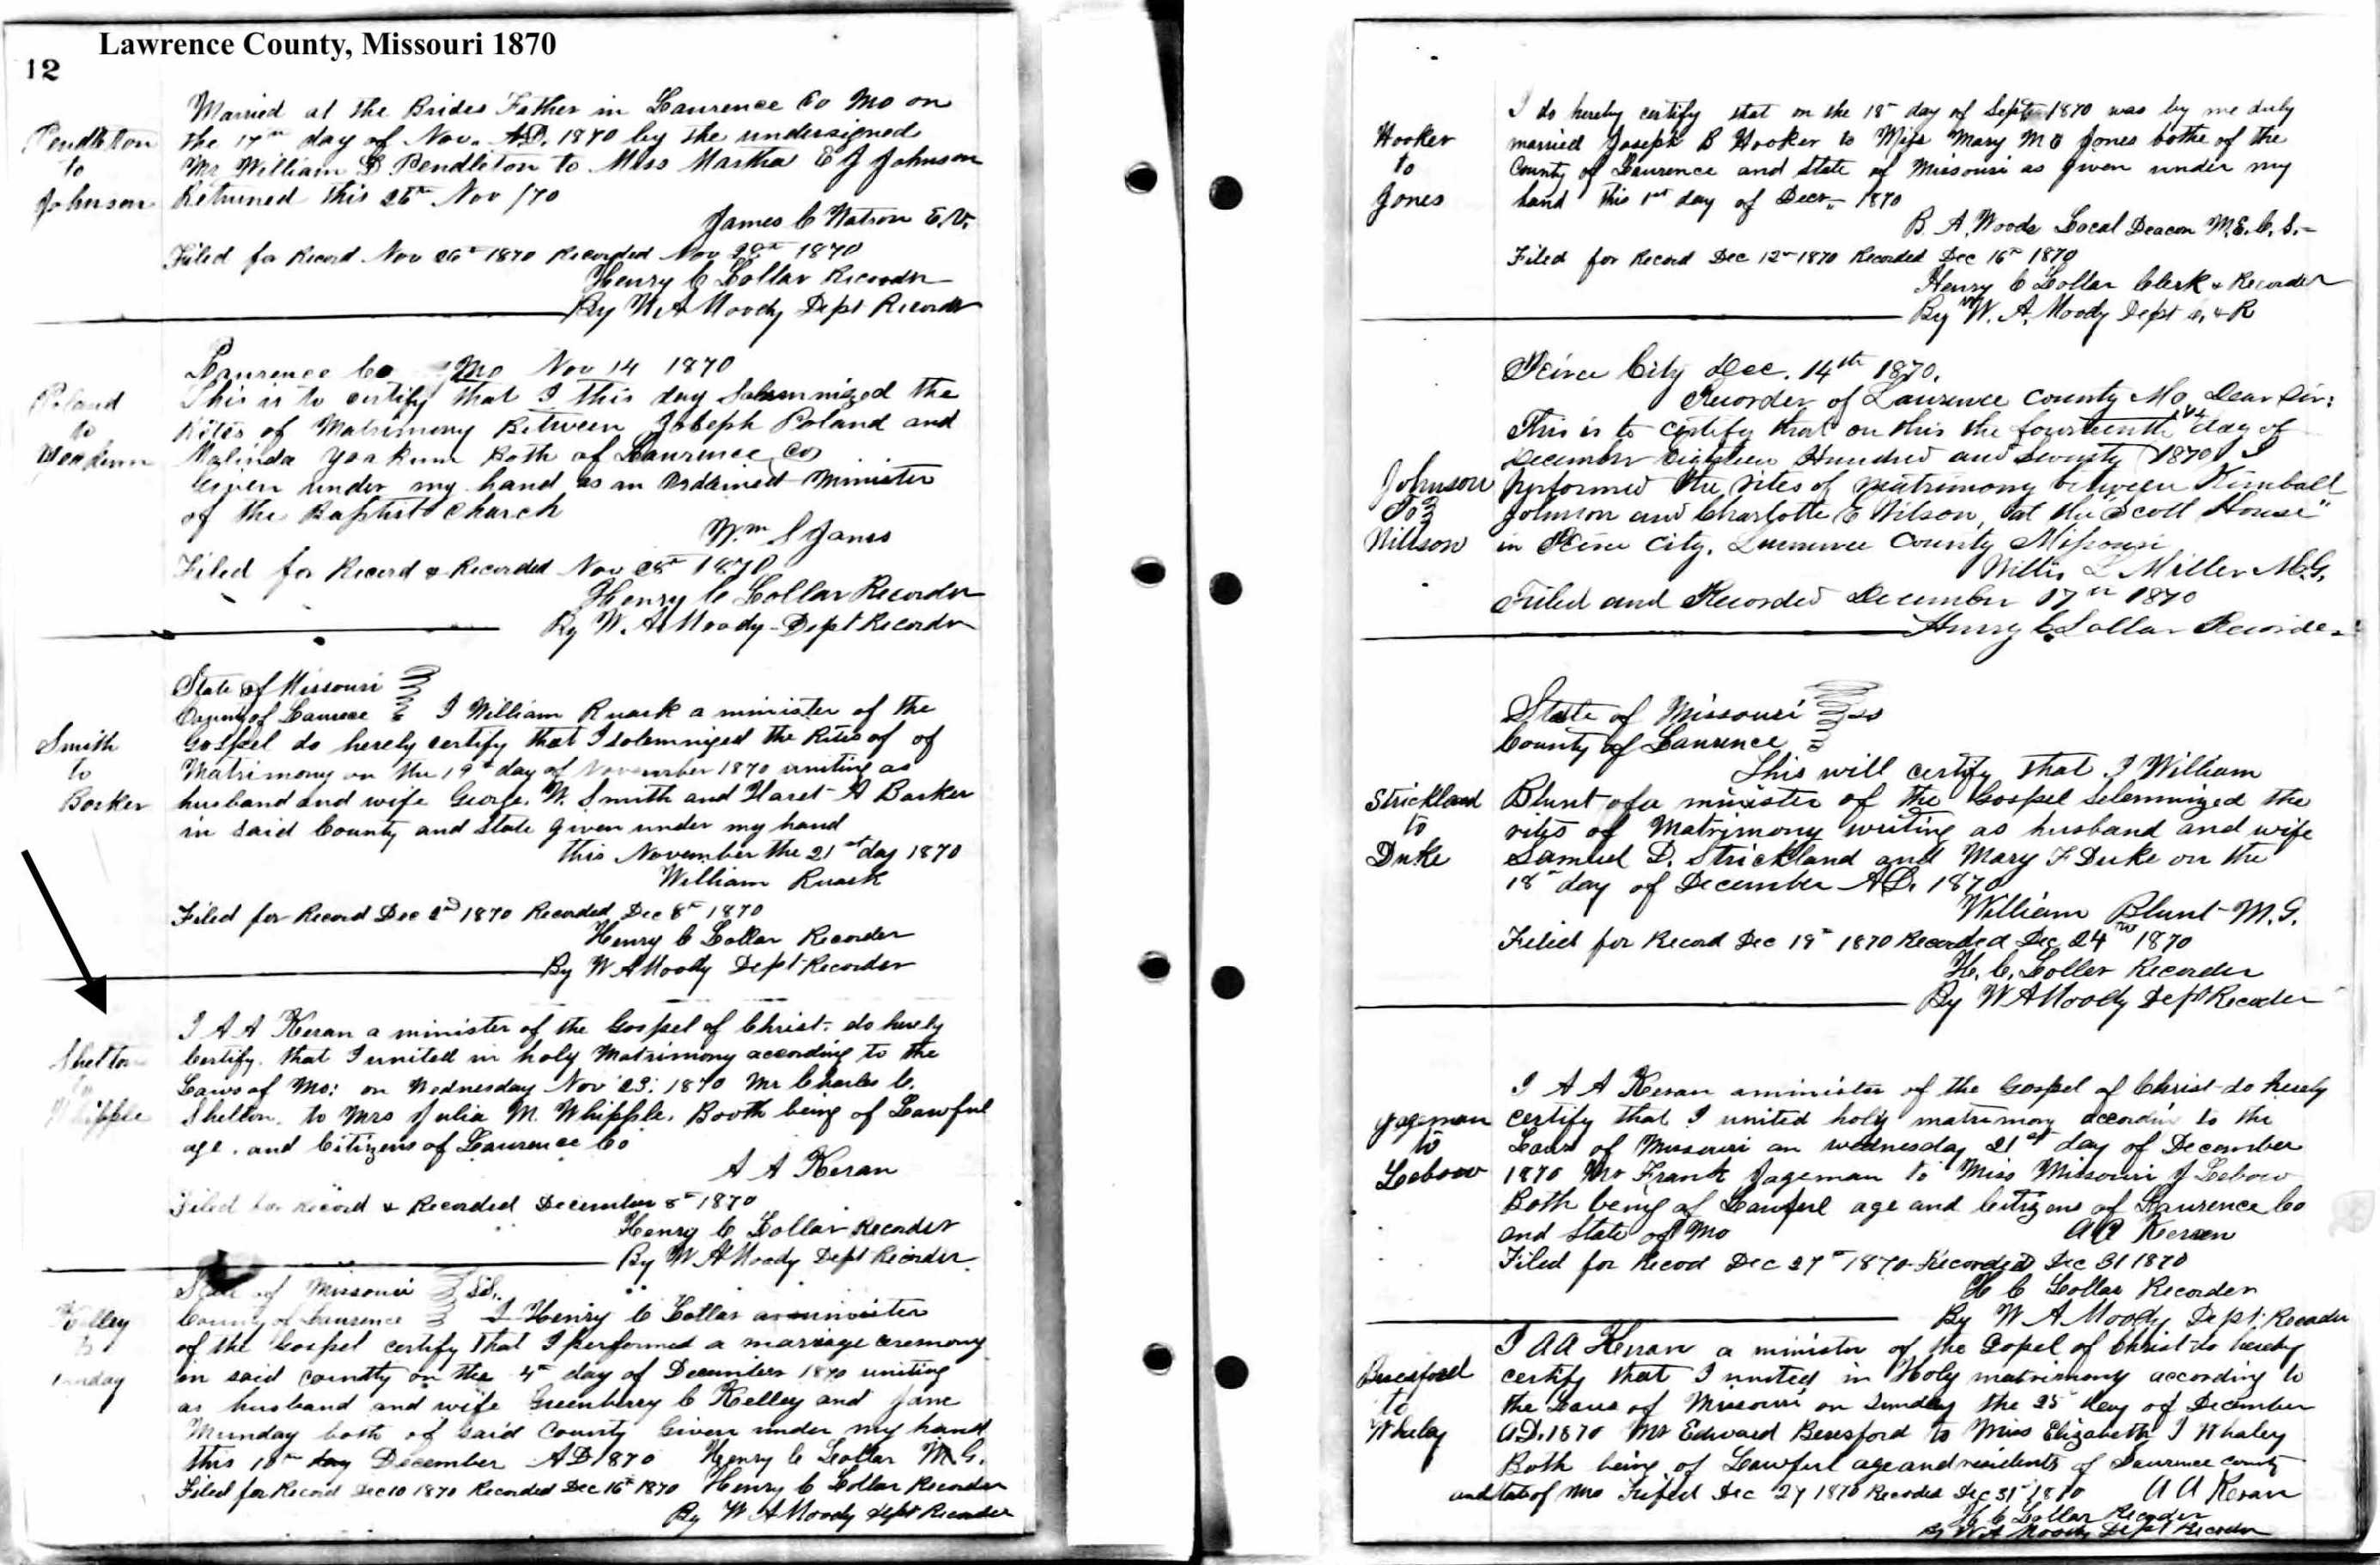 Lawrence County, Missouri 1870
12
Married at the Brides Father in Laurence Co Mo on
the 17th day of Nov. A.D. 1870 by the undersigned
Mr William D Pendleton to Miss Martha E J Johnson
Returned this 25th Nov /70
James C Watson E.V.
Pendleton
to
Johnson
Filed for Record Nov 26th 1870 Recorded Nov 28th 1870
Henry C Lollar Recorder
By W A Moody Dept Recorder
Laurence Co Mo Nov 14 1870
This is to certify that I this day Solemnized the
Rites of Matrimony Between Joseph Poland and
Malinda Yoakum Both of Laurence Co
Given under my hand as an Ordained Minister
of the Baptist Church
Wm S Janes
Poland
to
Yoakum
Filed for Record & Recorded Nov 28th 1870
Henry C Lollar Recorder
By W. A. Moody Dept Recordr
State of Missouri
County of Laurence I William Ruark a minister of the
Gospel do herely certify that I solemnized the Rites of of
Matrimony on the 19th day of November 1870 uniting as
husband and wife George. W. Smith and Haret A Barker
in said County and State given under my hand
this November the 21st day 1870
William Ruark
Smith
to
Barker
Filed for Record Dec 2nd 1870 Recorded Dec 8th 1870
Henry C Lollar Recorder
By W A Moody Dept Recorder
I A A Keran a minister of the Gospel of Christ do herely
Certify. that I united in holy Matrimony according to the
Laws of Mo: on Wednesday Nov 23: 1870 Mr Charles C.
Shelton to Mrs Julia M. Whipple. Booth being of Lawful
age. and Citizens of Laurence Co
A A Keran
Shelton
to
Whipple
Filed for record & Recorded December 8th 1870
Henry C Lollar Recorder
By W A Moody Dept Recorder
State of Missouri SS.
County of Laurence I Henry C Lollar a minister
of the Gospel certify that I performed a marriage ceremony
in said county on the 4th day of December 1870 uniting
as husband and wife Greenberry C Kelley and Jane
Munday both of said County Given under my hand
this 10th day December AD 1870 Henry C Lollar M.G.
Kelley
to
Munday
Filed for Record Dec 10 1870 Recorded Dec 16th 1870 Henry C Lollar Recorder
By W A Moody dept Recorder
I do hereby certify that on the 18th day of Sept 1870 was by me duly
married Joseph B Hooker to Miss Mary M Jones bothe of the
County of Laurence and State of Missouri as given under my
hand this 1st day of Decr 1870
B. A. Woods Local Deacon M.E.C.S.
Hooker
to
Jones
Filed for Record Dec 12th 1870 Recorded Dec 16th 1870
Henry C Lollar Clerk & Recorder
By W. A. Moody Dept C. & R
Peirce City Dec. 14th 1870.
Recorder of Laurence County Mo Dear Sir:
This is to certify that on this the fourteenth day of
December Eighteen Hundred and Seventy 1870 I
performed the rites of matrimony between Kimball
Johnson and Charlotte E Wilson, at the "Scott House"
in Peirce City. Laurence County Missouri
Willis L Miller M.G.
Johnson
To
Willson
Filed and Recorded December 17th 1870
Henry C Lollar Recorder
State of Missouri ss
County of Laurence
This will certify that I William
Blunt of a minister of the Gospel Solemnized the
rites of Matrimony uniting as husband and wife
Samuel D. Strickland and Mary F Duke on the
18th day of December A.D. 1870
William Blunt M.G.
Strickland
to
Duke
Filed for Record Dec 19th 1870 Recorded Dec 24th 1870
H. C. Loller Recorder
By W A Moody Dept Recorder
I A A Keran a minister of the Gospel of Christ do herely
certify that I united holy matrimony accordin to the
Laws of Missouri on wednesday 21st day of December
1870 Mr Frank Jageman to Miss Missouri J Lebow
Both being of Lawful age and Citizens of Laurence Co
and State of Mo A A Keran
Jageman
to
Lebow
Filed for Record Dec 27th 1870 Recorded Dec 31 1870
H C Lollar Recorder
By W A Moody Dept. Recorder
I A A Keran a minister of the Gopel of Christ do hereby
certify that I united in Holy matrimony according to
the Laws of Missouri on Sunday the 25 day of December
A.D. 1870 Mr Edward Beresford to Miss Elizabeth J Whaley
Both being of Lawful age and residents of Laurence County
and State of Mo Filed Dec 27 1870 Recorded Dec 31st 1870 A A Keran
Beresford
to
Whaley
H C Lollar Recorder
By W A Moody Dept Recorder